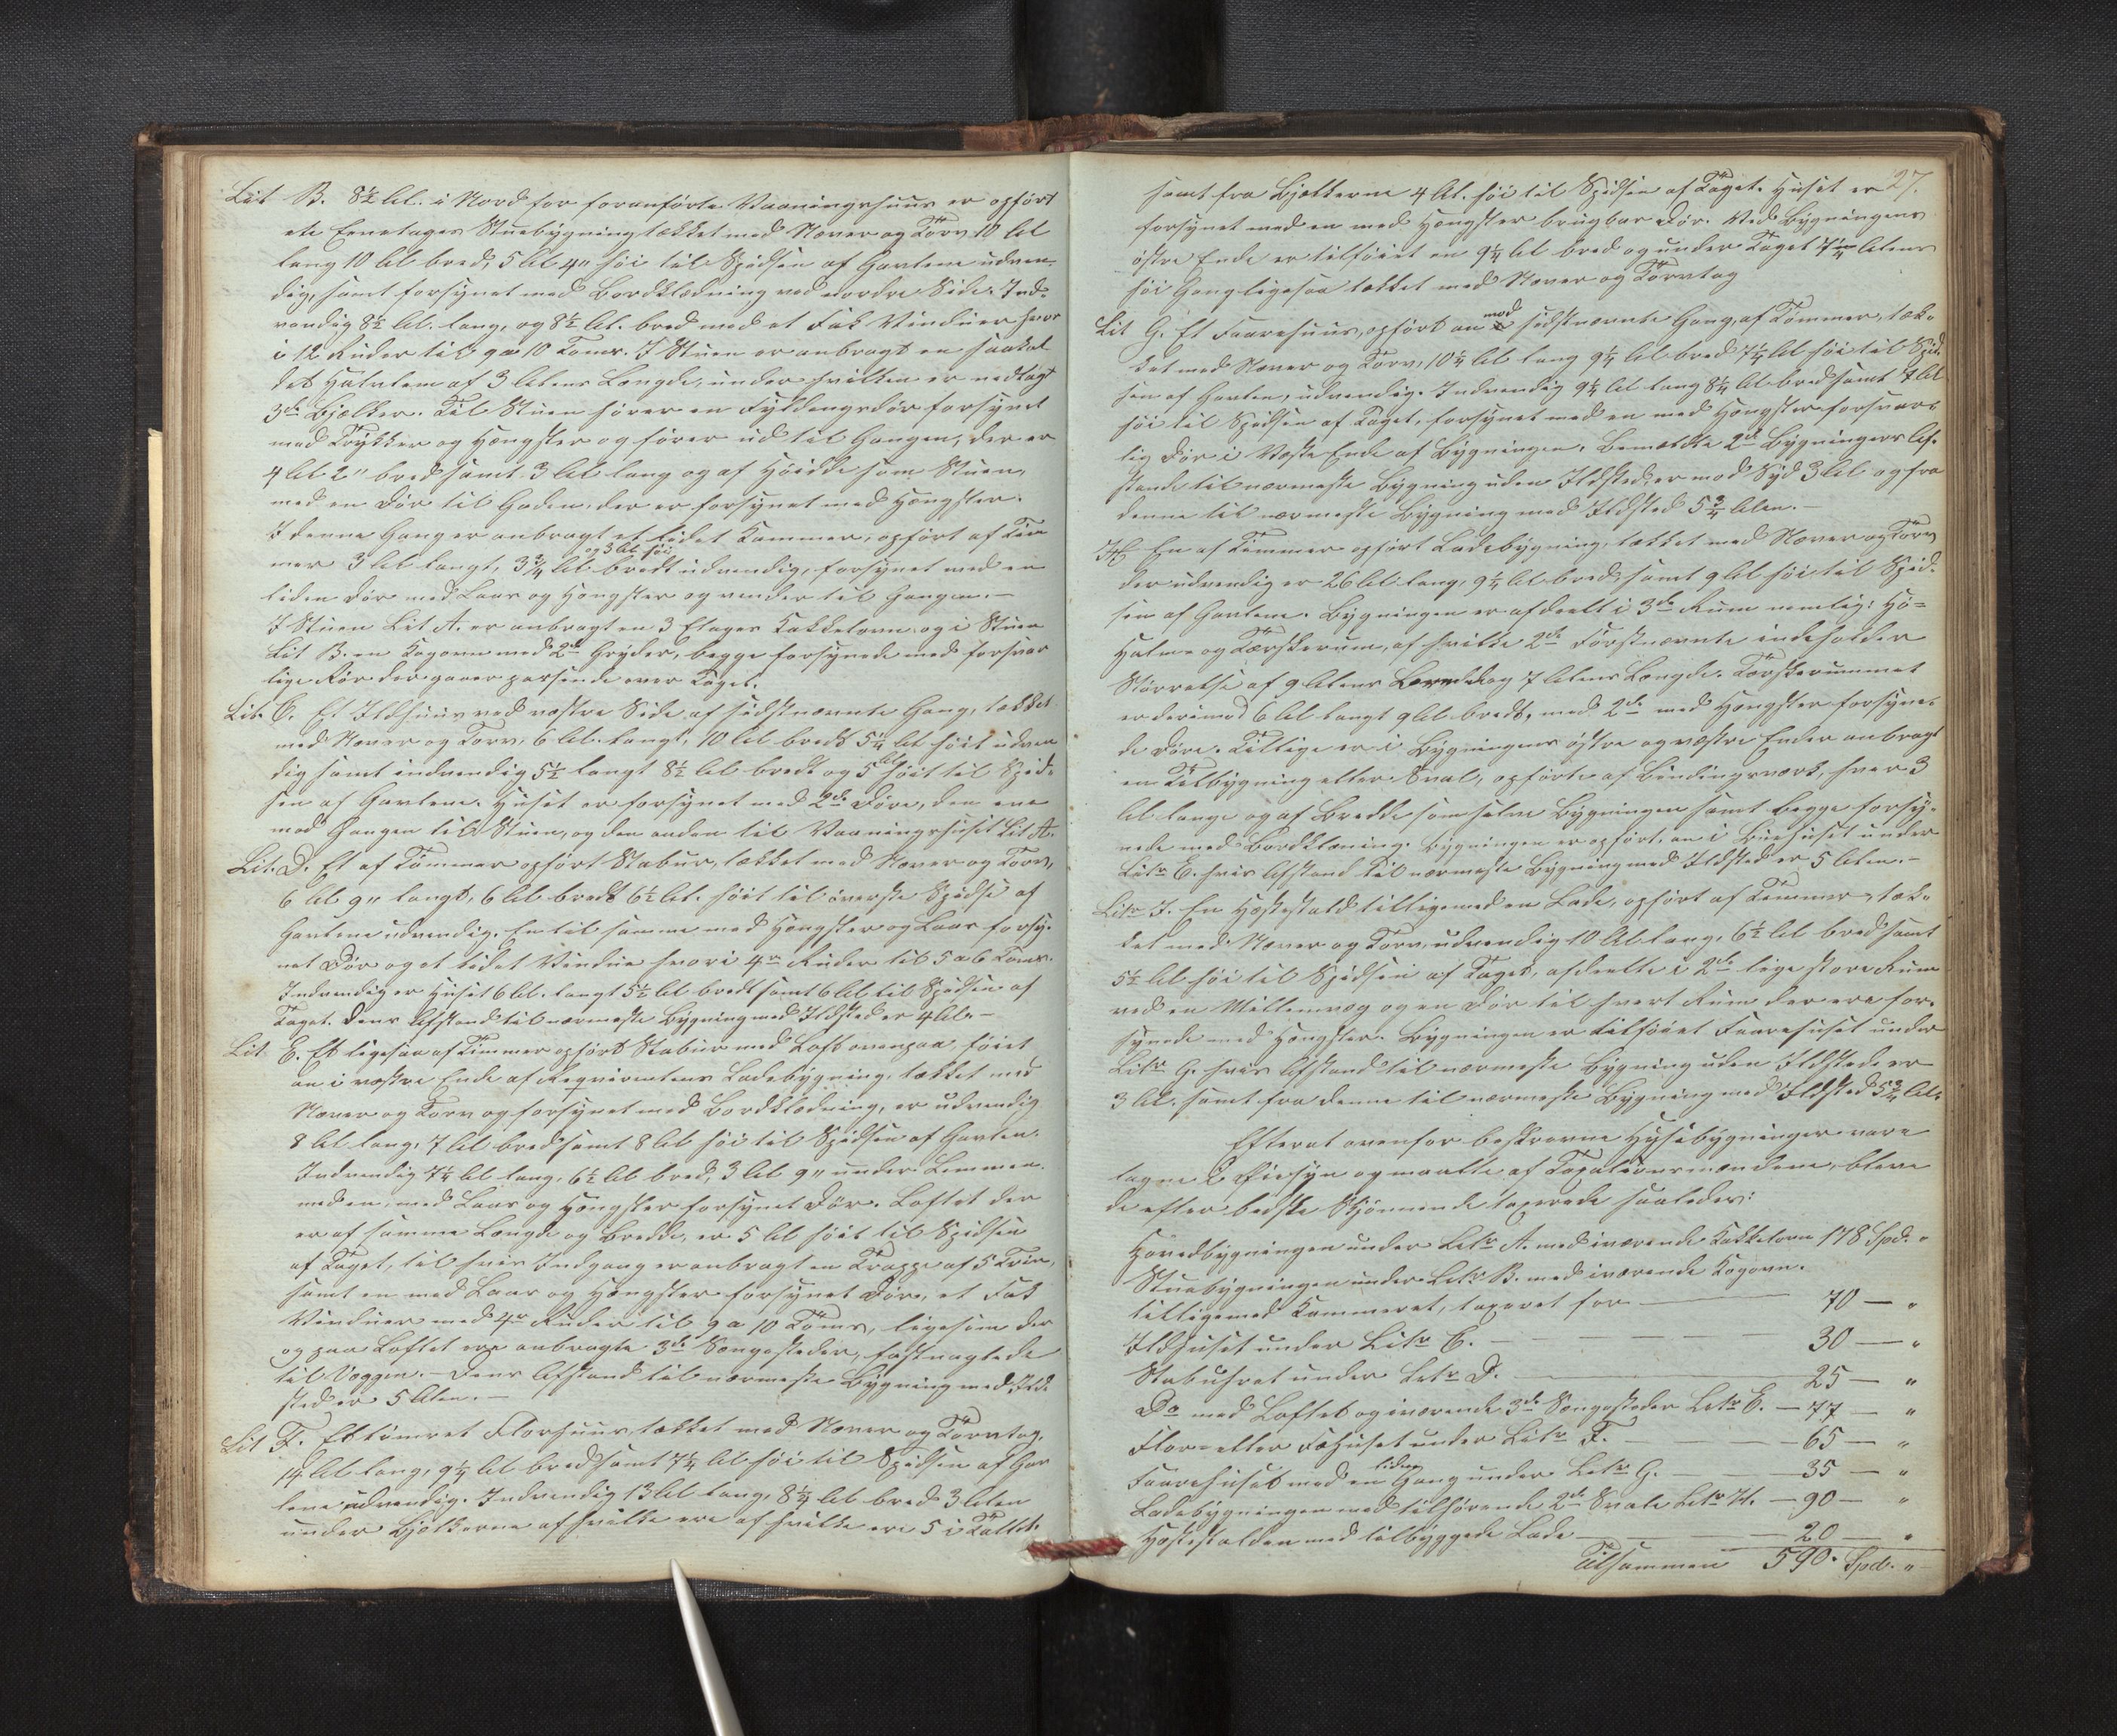 Lit B. 8½ Al. i Nord for foranførte Vaaningshuus er opført
ete Eenetages Stuebygning tækket med Næver og Torv 10 Al
lang 10 Al bred, 5 Al 4" høi til Spidsen af Gavlene udven-
dig, samt forsynet med Bordklædning ved nordre Side. Ind-
vendig 8½ Al. lang, og 8½ Al. bred med et Fak Vinduer hvor
i 12 Ruder til 9 a 10 Toms. I Stuen er anbragt en saakal
det Halvlem af 3 Alens Længde, under hvilken er nedlagt
3de Bjælker. Til Stuen hører en Fyldingsdør forsynet
med Trykker og Hængsler og fører ud til Gangen, der er
4 Al 2" bred samt 3 Al lang og af Høide som Stuen,
med en Dør til Gaden, der er forsynet med Hængsler.
I denne Gang er anbragt et lidet Kammer, opført af Tøm
og 3 Al høi
mer 3 Al langt, 3¾ Al bredt udvendig, forsynet med en
liden Dør med Laas og Hængsler og vender til Gangen.—
I Stuen Lit A. er anbragt en 3 Etages Kakkelovn, og i Stuen
Lit B. en Kogovn med 2de Gryder, begge forsynede med forsvar
lige Rør der gaaer passende over Taget.
Lit. C. Et Ildhuus ved vestre Side af sidstnævnte Gang, tækket
med Næver og Torv, 6 Al. langt, 10 Al bredt 5¼ Al høit udven
dig samt indvendig 5½ langt 8½ Al bredt og 5 Al høit til Spid-
sen af Gavlene. Huset er forsynet med 2de Døre, den ene
mod Gangen til Stuen, og den anden til Vaaningshuset Lit A.
Lit. D. Et af Tømmer opført Stabur, tækket med Næver og Torv,
6 Al 9" langt, 6 Al bredt 6½ Al. høit til øverste Spidse af
Gavlene udvendig. En til samme med Hængsler og Laas forsy-
net Dør og et lidet Vindue hvori 4re Ruder til 5 a 6 Toms.
Indvendig er Huset 6 Al. langt 5½ Al bredt samt 6 Al til Spidsen af
Taget. Dens Afstand til nærmeste Bygning med Ildsted er 4 Al.—
Lit E. Et ligesaa af Tømmer opført Stabur med Loft ovenpaa, føiet
an i vestre Ende af Reqvirentens Ladebygning, tækket med
Næver og Torv og forsynet med Bordklædning, er udvendig
8 Al lang, 7 Al bred samt 8 Al høi til Spidsen af Gavlen.
Indvendig 7¼ Al lang, 6½ Al bred, 3 Al 9" under Lemmen
med en, med Laas og Hængsler forsynet Dør. Loftet der
er af samme Længde og Bredde, er 5 Al høit til Spidsen
af Taget, til hvis Indgang er anbragt en Trappe af 5 Trin,
samt en med Laas og Hængsler forsynet Dør, et Fak
Vinduer med 4re Ruder til 9 a 10 Toms, ligesom der
og paa Loftet ere anbragte 3de Sængesteder, fastnaglede
til Væggen.— Dens Afstand til nærmeste Bygning med Ild-
sted er 5 Alen.—
Lit F. Et tømret Florhuus tækket med Næver og Torvtag,
14 Al lang, 9¼ Al bred samt 7¼ Al høi til Spidsen af Gav
lene udvendig. Indvendig 13 Al lang, 8¼ Al bred 3 Alen
under Bjelkerne af hvilke ere af hvilke ere 5 i Tallet.
27.
samt fra Bjelkerne 4 Al. høi til Spidsen af Taget. Huset er
forsynet med en med Hængsler brugbar Dør. Ved Bygningens
østre Ende er tilføiet en 9¼ Al bred og under Taget 7¼ Alens
høi Gang ligesaa tækket med Næver og Torvtag
Lit G. Et Faarehuus, opført an mod sidstnævnte Gang, af Tømmer, tæk-
ket med Næver og Torv, 10¼ Al lang 9¼ Al bred 7¼ Al høi til Spid-
sen af Gavlen, udvendig. Indvendig 9¼ Al lang 8¼ Al bred samt 7 Al
høi til Spidsen af Taget, forsynet med en med Hængsler forsvar-
lig Dør i Vestre Ende af Bygningen. Bemældte 2de Bygningers Af-
stand til nærmeste Bygning uden Ildsted, er mod Syd 3 Al og fra
denne til nærmeste Bygning med Ildsted 5¾ Alen.—
H. En af Tømmer opført Ladebygning, tækket med Næver og Torv
der udvendig er 26 Al lang, 9¼ Al bred samt 9 Al høi til Spid-
sen af Gavlene. Bygningen er afdeelt i 3de Rum nemlig: Hø-
Halm- og Tærskerum, af hvilke 2de Førstnævnte indeholder
Størrelse af 9 Alens Bredde og 7 Alens Længde. Tærskerummet
er derimod 6 Al langt 9 Al bredt, med 2de med Hængsler forsyne-
de Døre. Tillige er i Bygningens østre og vestre Ender anbragt
en Tilbygning eller Sval, opførte af Bindingsværk, hver 3
Al lange og af Bredde som selve Bygningen samt begge forsy-
nede med Bordklæning. Bygningen er opført an i Huset under
Litr E. hvis Afstand til nærmeste Bygning med Ildsted er 5 Alen.—
Litr I. En Hestestald tilligemed en Lade, opført af Tømmer, tæk-
ket med Næver og Torv, udvendig 10 Al lang, 6½ Al bred samt
5½ Al høi til Spidsen af Taget, afdeelte i 2de lige store Rum
ved en Mellemvæg og en Dør til hvert Rum der ere for-
synede med Hængsler. Bygningen er tilføiet Faarehuset under
Litr G. hvis Afstand til nærmeste Bygning uden Ildsted er
3 Al. samt fra denne til nærmeste Bygning med Ildsted 5¾ Al.
Efterat ovenfor beskrevne Husebygninger vare
tagne i Øiesyn og maalte af Taxationsmændene, bleve
de efter bedste Skjønnende taxerede saaledes:
Hovedbygningen under Litr A. med iværende Kakkelovn 178 Spd. "
Stuebygningen under Litr B. med iværende Kogovn.
tilligemed Kammeret, taxeret for — 70 — "
Ildhuset under Litr C. — 30 — "
Stabuhret under Litr D. — 25 — "
Do med Loftet og iværende 3de Sængesteder Litr E. — 77 — "
Flor- eller Fæhuset under Litr F. — 65 — "
Faarehuset med en liden Gang under Litr G. — 35 — "
Ladebygningen med tilhørende 2de Svale Litr H. — 90 — "
Hestestalden med tilbyggede Lade — 20 — "
Tilsammen 590. Spd. "